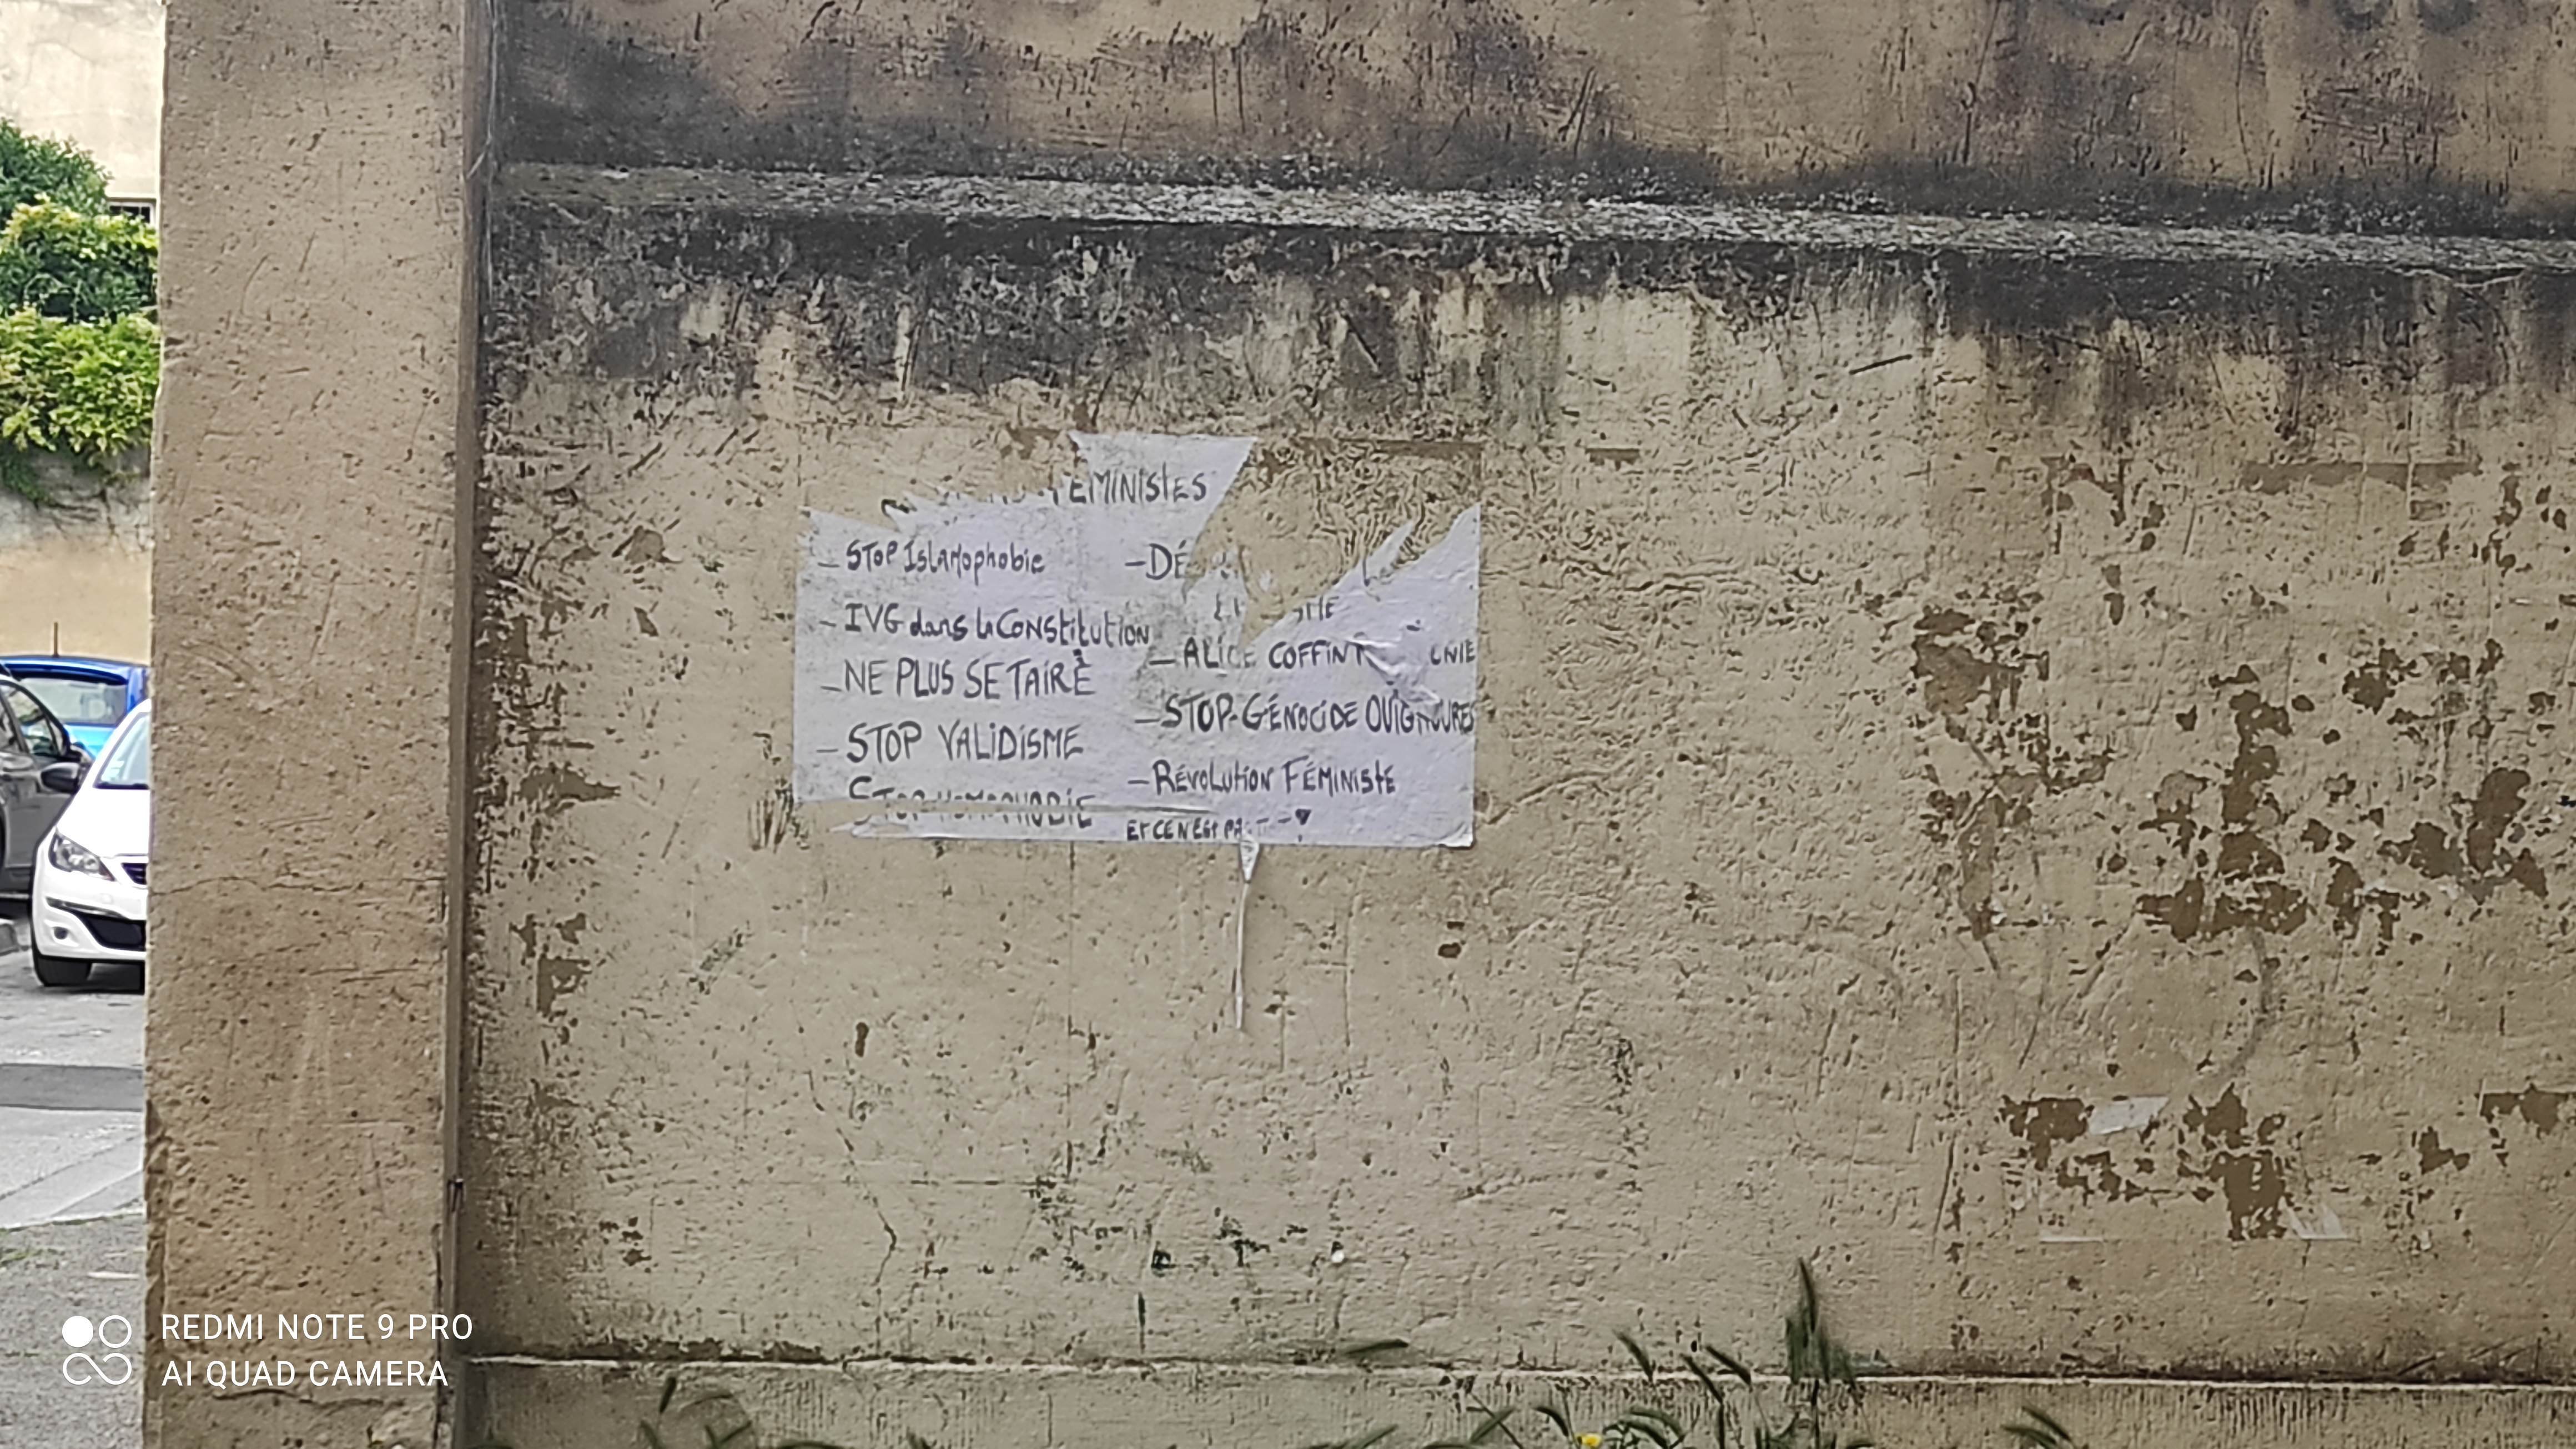 FÉMINISTES
- STOP Islamophobie
- IVG dans la CONSTITUTION
- NE PLUS SE TAIRE
- STOP VALIDISME
STOP HOMOPHOBIE
- ALICE COFFIN
- STOP GÉNOCIDE OUÏGHOURES
- RÉVOLUTION FÉMINISTE
ET CE N'EST PAS
REDMI NOTE 9 PRO
AI QUAD CAMERA